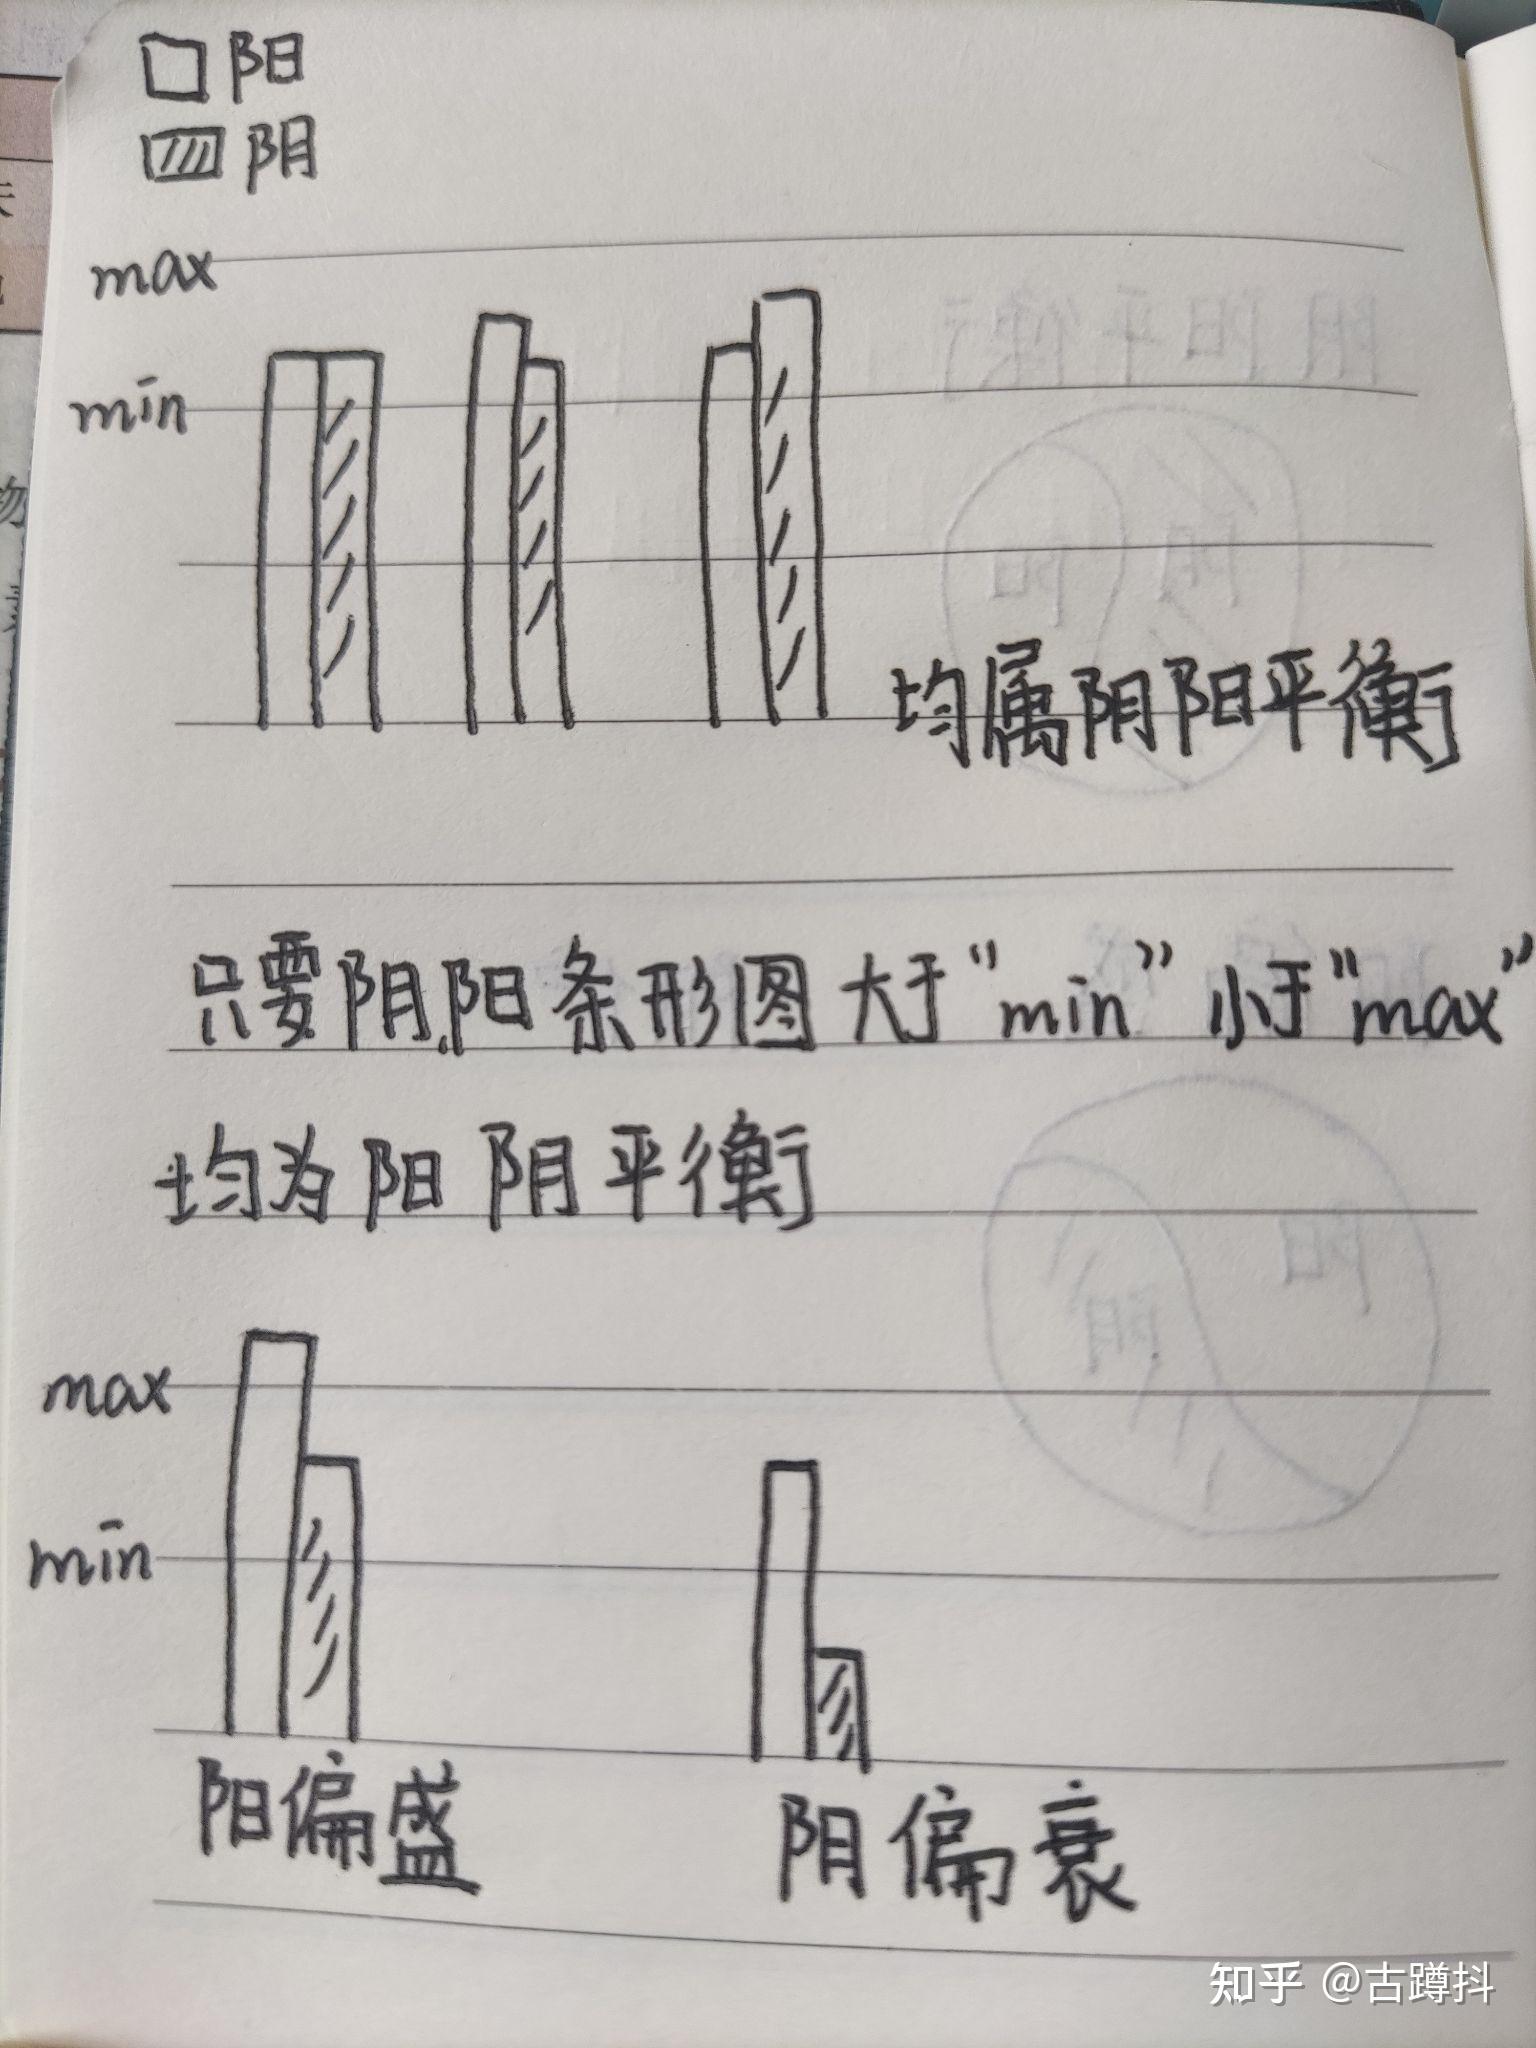 阳
阴
max
min
均属阴阳平衡
只要阴,阳条形图大于“min”小于“max”
均为阳阴平衡
max
min
阳偏盛
阴偏衰
知乎 @古蹲抖